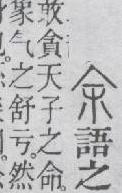 余語之
敢貪天子之命。
象气之舒亏。然